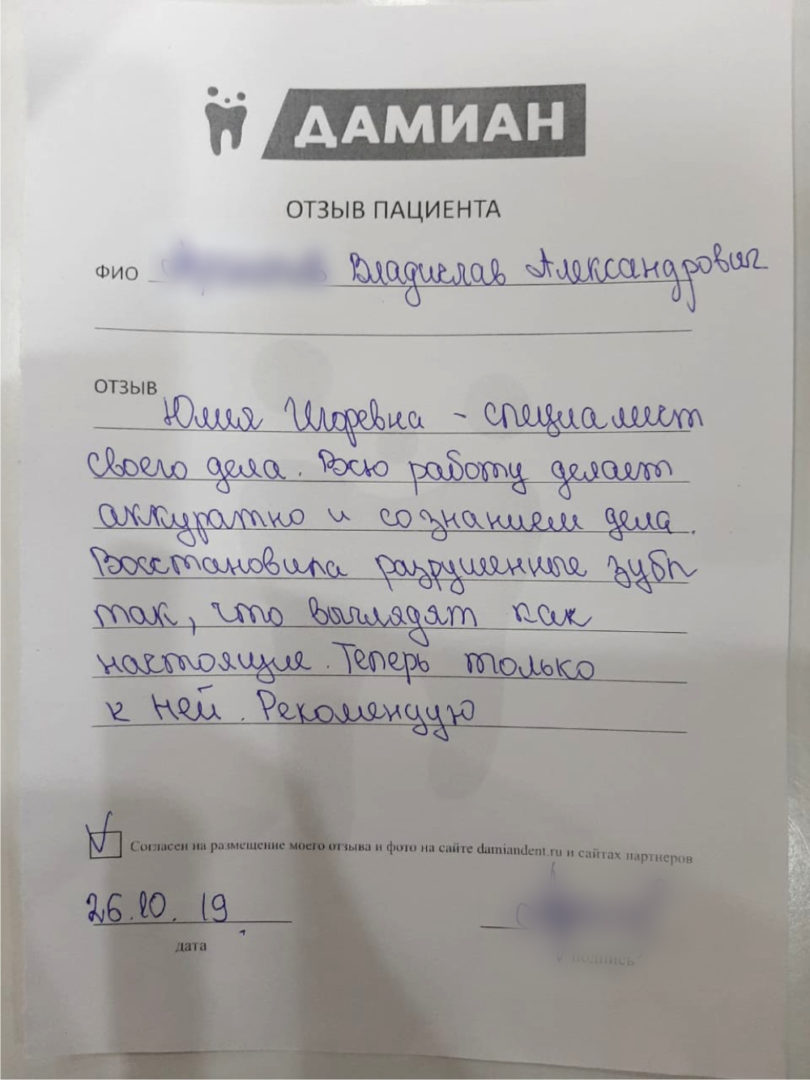 ДАМИАН
ОТЗЫВ ПАЦИЕНТА
ФИО Владислав Александрович
ОТЗЫВ
Юлия Игоревна - специалист
своего дела. Всю работу делает
аккуратно и со знанием дела.
Восстановила разрушенные зубы
так, что выглядят как
настоящие. Теперь только
к ней. Рекомендую
Согласен на размещение моего отзыва и фото на сайте damiandent.ru и сайтах партнеров
26.10.19
дата
подпись